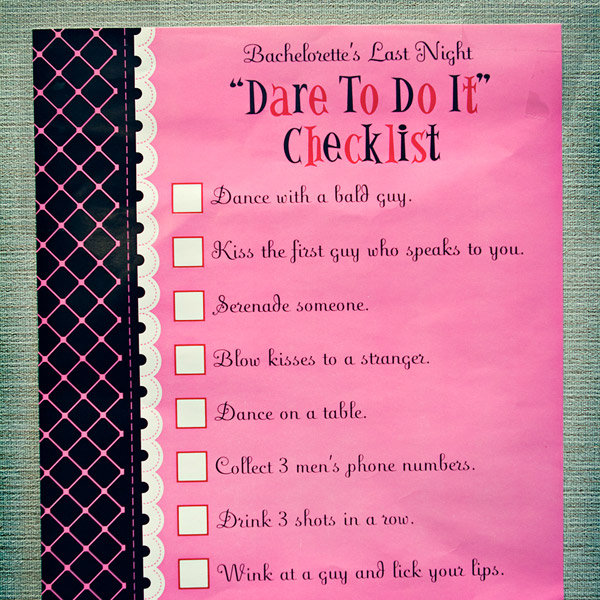 Bachelorette's Last Night
"Dare To Do It"
Checklist
Dance with a bald guy.
Kiss the first guy who speaks to you.
Serenade someone.
Blow kisses to a stranger.
Dance on a table.
Collect 3 men's phone numbers.
Drink 3 shots in a row.
Wink at a guy and lick your lips.